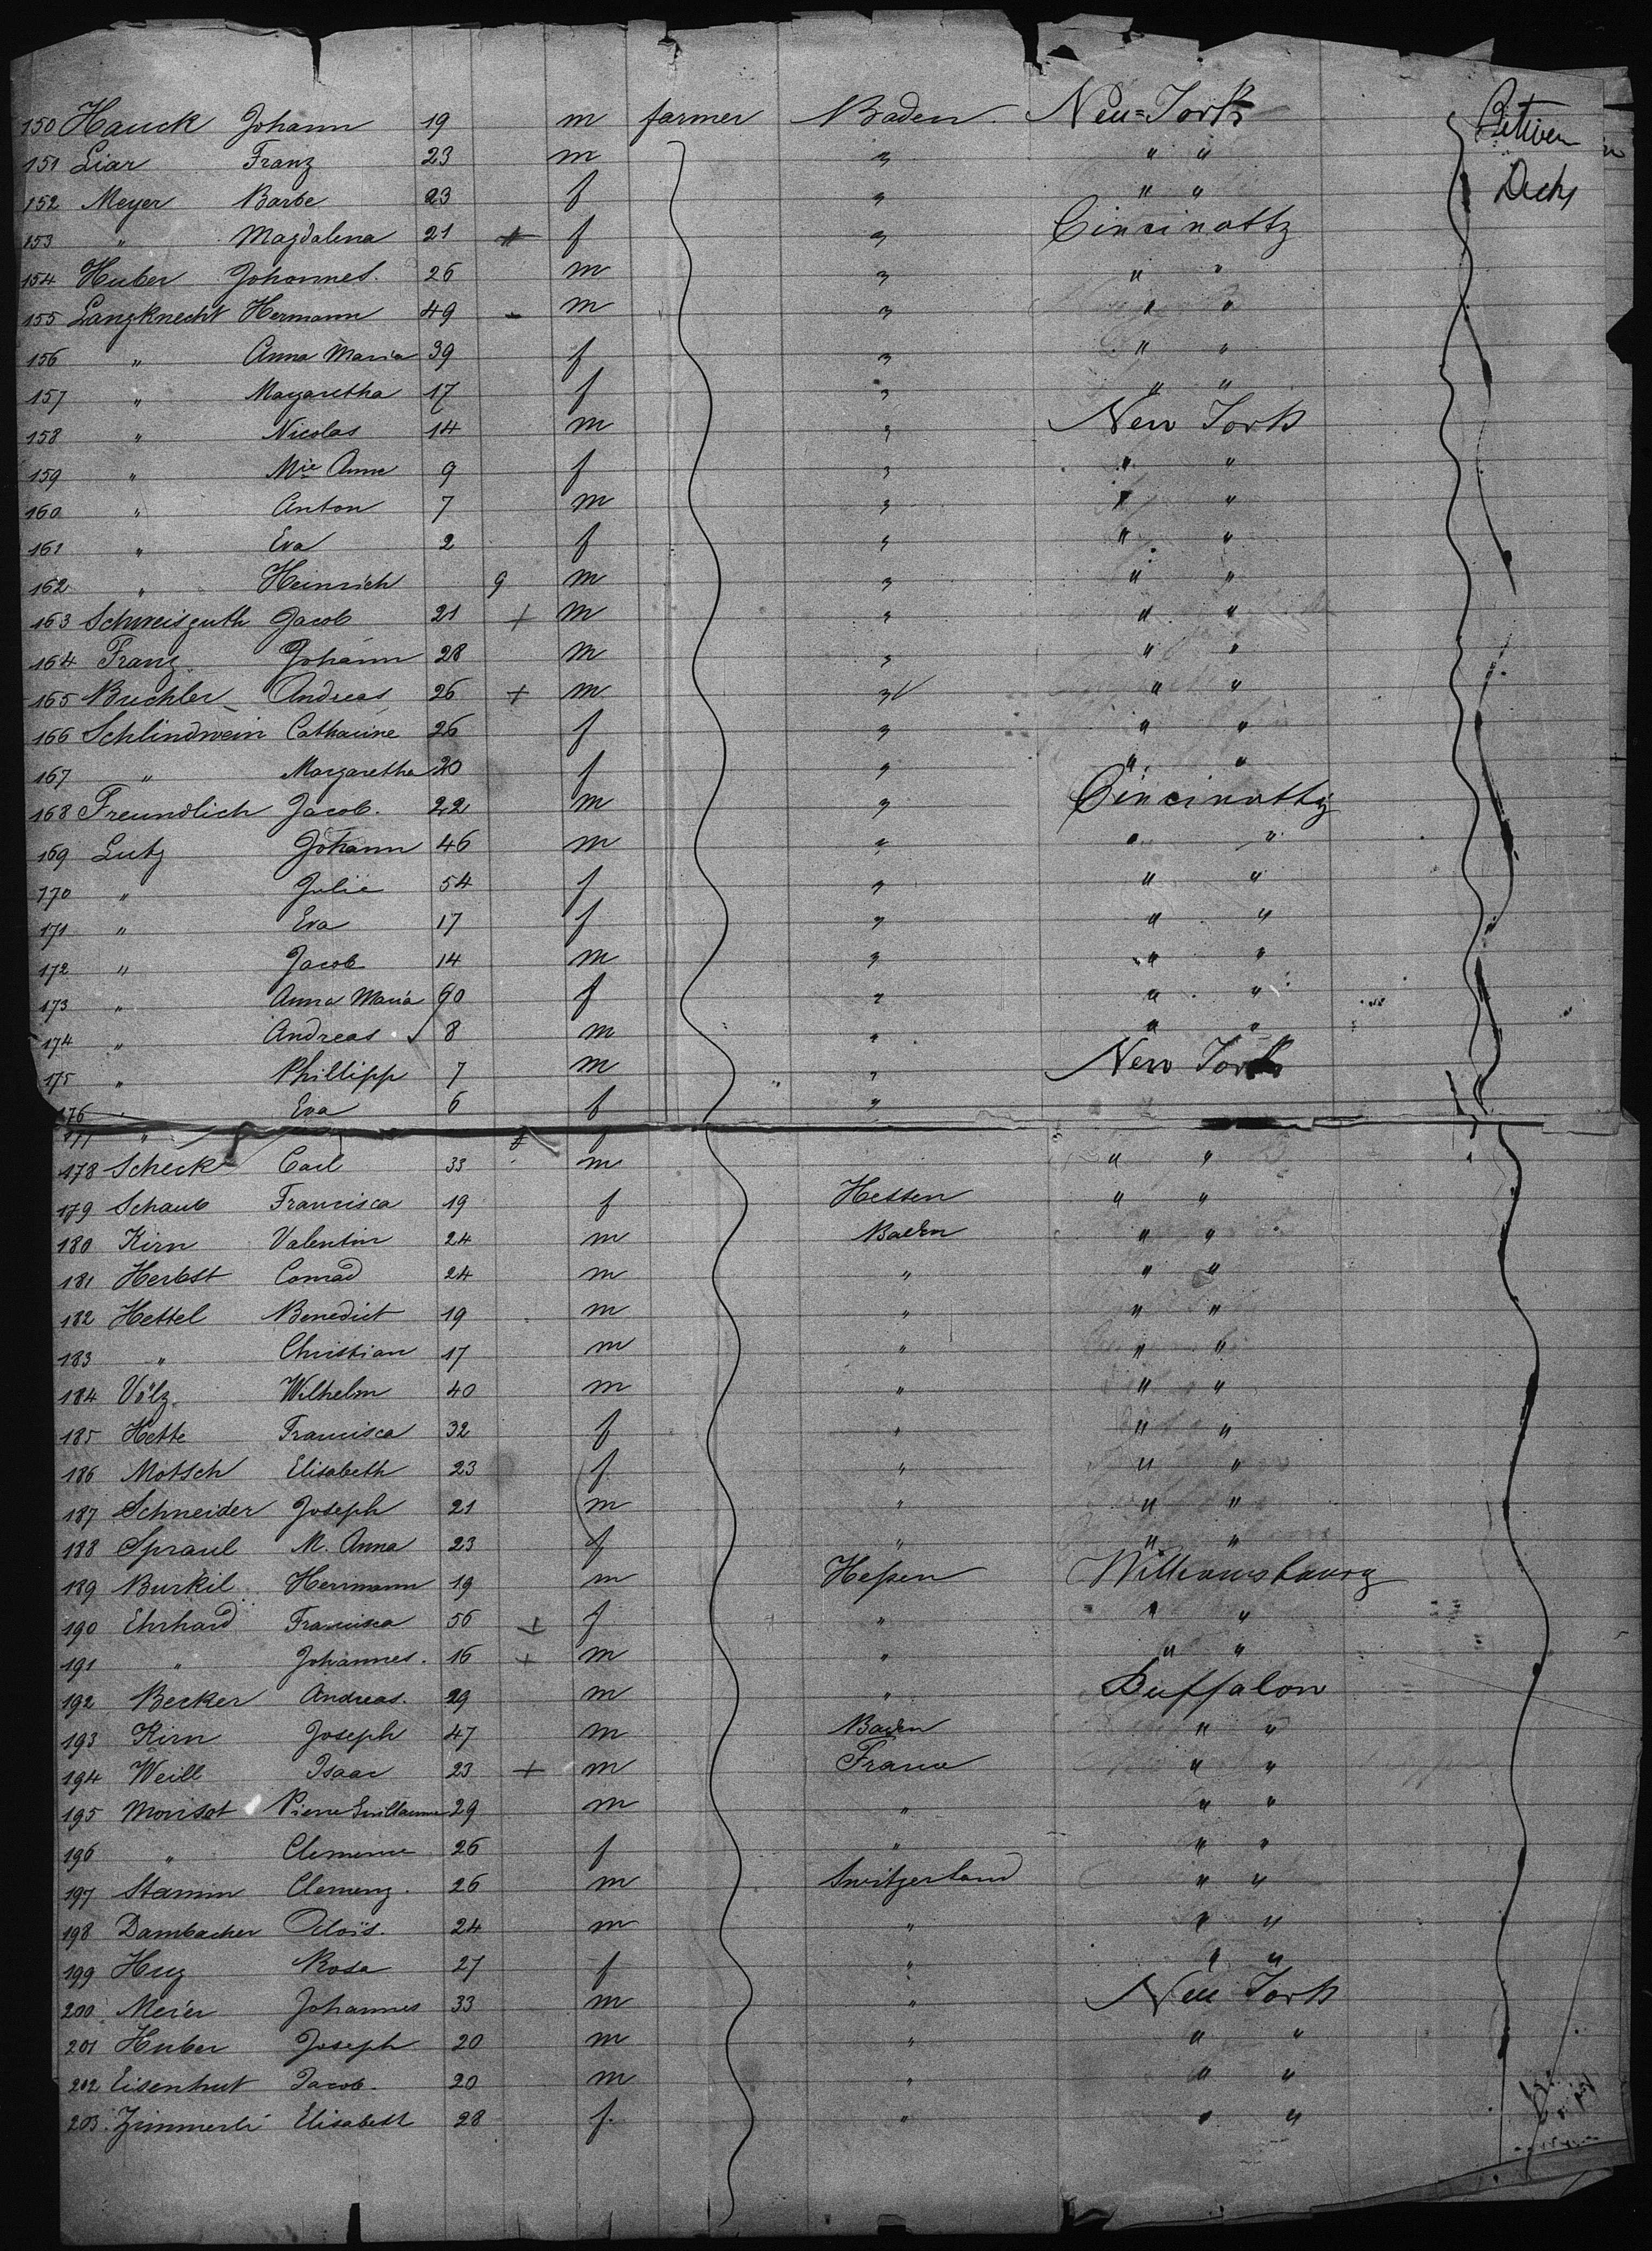 150 Hauck Johann 19 m farmer Baden. Neu=York Between
151 Liar Franz 23 m " " "
152 Meyer Barbe 23 f " " " Decks
153 " Magdalena 21 + f " Cincinatty
154 Huber Johannes. 26 m " " "
155 Langknecht Hermann 49 - m " " "
156 " Anna Maria 39 f " " "
157 " Margaretha 17 f " " "
158 " Nicolas 14 m " New York
159 " Mie Anne 9 f " " "
160 " Anton 7 m " " "
161 " Eva 2 f " " "
162 " Heinrich 9 m " " "
163 Schweisguth Jacob 21 + m " " "
164 Franz Johann 28 m " " "
165 Buchler Andreas 26 + m " " "
166 Schlindwein Catharine 26 f " " "
167 " Margaretha 20 f " " "
168 Freundlich Jacob. 22 m " Cincinatty
169 Lutz Johann 46 m " " "
170 " Julie 54 f " " "
171 " Eva 17 f " " "
172 " Jacob 14 m " " "
173 " Anna Maria f " " "
174 " Andreas 8 m " " "
175 " Phillipp 7 m " New York
176 " Eva 6 f "
177 " f
178 Scheck Carl 33 m " "
179 Schaub Francisca 19 f Hessen " "
180 Kirn Valentin 24 m Baden " "
181 Herbst Conrad 24 m " " "
182 Hettel Benedict 19 m " " "
183 " Christian 17 m " " "
184 Völz Wilhelm 40 m " " "
185 Hette Francisca 32 f " " "
186 Motsch Elisabeth 23 f " " "
187 Schneider Joseph 21 m " " "
188 Spraul M. Anna 23 f " " "
189 Burkil Herrmann 19 m Hessen Williamsbourg
190 Ehrhard Francisca 56 + f " " "
191 " Johannes. 16 + m " " "
192 Becker Andreas. 29 m " Buffalon
193 Kirn Joseph 47 m Baden " "
194 Weill Isaac 23 + m France " "
195 Morisot Pierre Guillaume 29 m " " "
196 " Clemence 26 f " " "
197 Stamm Clemenz. 26 m Switzerland " "
198 Dambacher Aloïs. 24 m " " "
199 Hug Rosa 27 f " " "
200 Meier Johannes 33 m " Neu York
201 Huber Joseph 20 m " " "
202 Eisenhut Jacob. 20 m " " "
203. Zimmerli Elisabeth 28 f. " " "